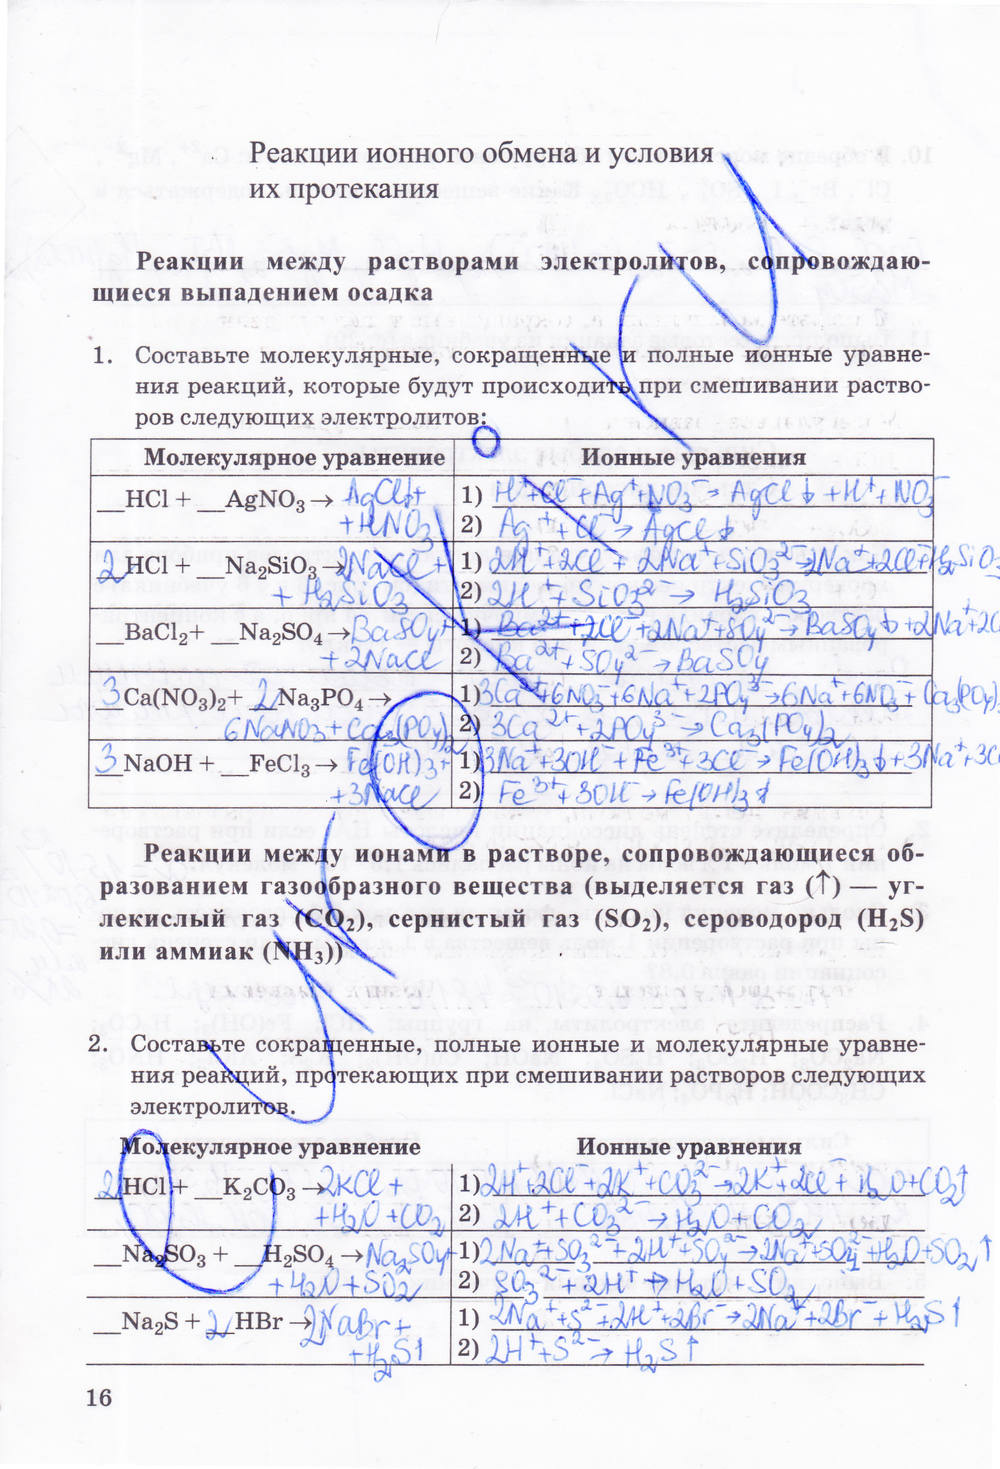 Реакции ионного обмена и условия
их протекания
Реакции между растворами электролитов, сопровождаю-
щиеся выпадением осадка
1. Составьте молекулярные, сокращенные и полные ионные уравне-
ния реакций, которые будут происходить при смешивании раство-
ров следующих электролитов:
Молекулярное уравнение Ионные уравнения
__HCl + __AgNO₃ → AgCl↓+ 1) H⁺+Cl⁻+Ag⁺+NO₃⁻→AgCl↓+H⁺+NO₃⁻
+HNO₃ 2) Ag⁺+Cl⁻→AgCl↓
2HCl + Na₂SiO₃→2NaCl+ 1) 2H⁺+2Cl⁻+2Na⁺+SiO₃²⁻→2Na⁺+2Cl⁻+H₂SiO₃
+H₂SiO₃ 2) 2H⁺+SiO₃²⁻→H₂SiO₃
__BaCl₂+ __Na₂SO₄→BaSO₄+ 1) Ba²⁺+2Cl⁻+2Na⁺+SO₄²⁻→BaSO₄↓+2Na⁺+2C
+2NaCl 2) Ba²⁺+SO₄²⁻→BaSO₄
3Ca(NO₃)₂+ 2Na₃PO₄→ 1) 3Ca²⁺+6NO₃⁻+6Na⁺+2PO₄³⁻→6Na⁺+6NO₃⁻+Ca₃(PO₄)
6NaNO₃+Ca₃(PO₄)₂ 2) 3Ca²⁺+2PO₄³⁻→Ca₃(PO₄)₂
3NaOH + __FeCl₃→Fe(OH)₃+ 1) 3Na⁺+3OH⁻+Fe³⁺+3Cl⁻→Fe(OH)₃↓+3Na⁺+3C
+3NaCl 2) Fe³⁺+3OH⁻→Fe(OH)₃↓
Реакции между ионами в растворе, сопровождающиеся об-
разованием газообразного вещества (выделяется газ (↑) — уг-
лекислый газ (CO₂), сернистый газ (SO₂), сероводород (H₂S)
или аммиак (NH₃))
2. Составьте сокращенные, полные ионные и молекулярные уравне-
ния реакций, протекающих при смешивании растворов следующих
электролитов.
Молекулярное уравнение Ионные уравнения
2HCl + __K₂CO₃→2KCl+ 1) 2H⁺+2Cl⁻+2K⁺+CO₃²⁻→2K⁺+2Cl⁻+H₂O+CO₂↑
+H₂O+CO₂ 2) 2H⁺+CO₃²⁻→H₂O+CO₂
__Na₂SO₃ + __H₂SO₄→Na₂SO₄+ 1) 2Na⁺+SO₃²⁻+2H⁺+SO₄²⁻→2Na⁺+SO₄²⁻+H₂O+SO₂↑
+H₂O+SO₂ 2) SO₃²⁻+2H⁺→H₂O+SO₂
__Na₂S + 2HBr→2NaBr+ 1) 2Na⁺+S²⁻+2H⁺+2Br⁻→2Na⁺+2Br⁻+H₂S↑
+H₂S↑ 2) 2H⁺+S²⁻→H₂S↑
16